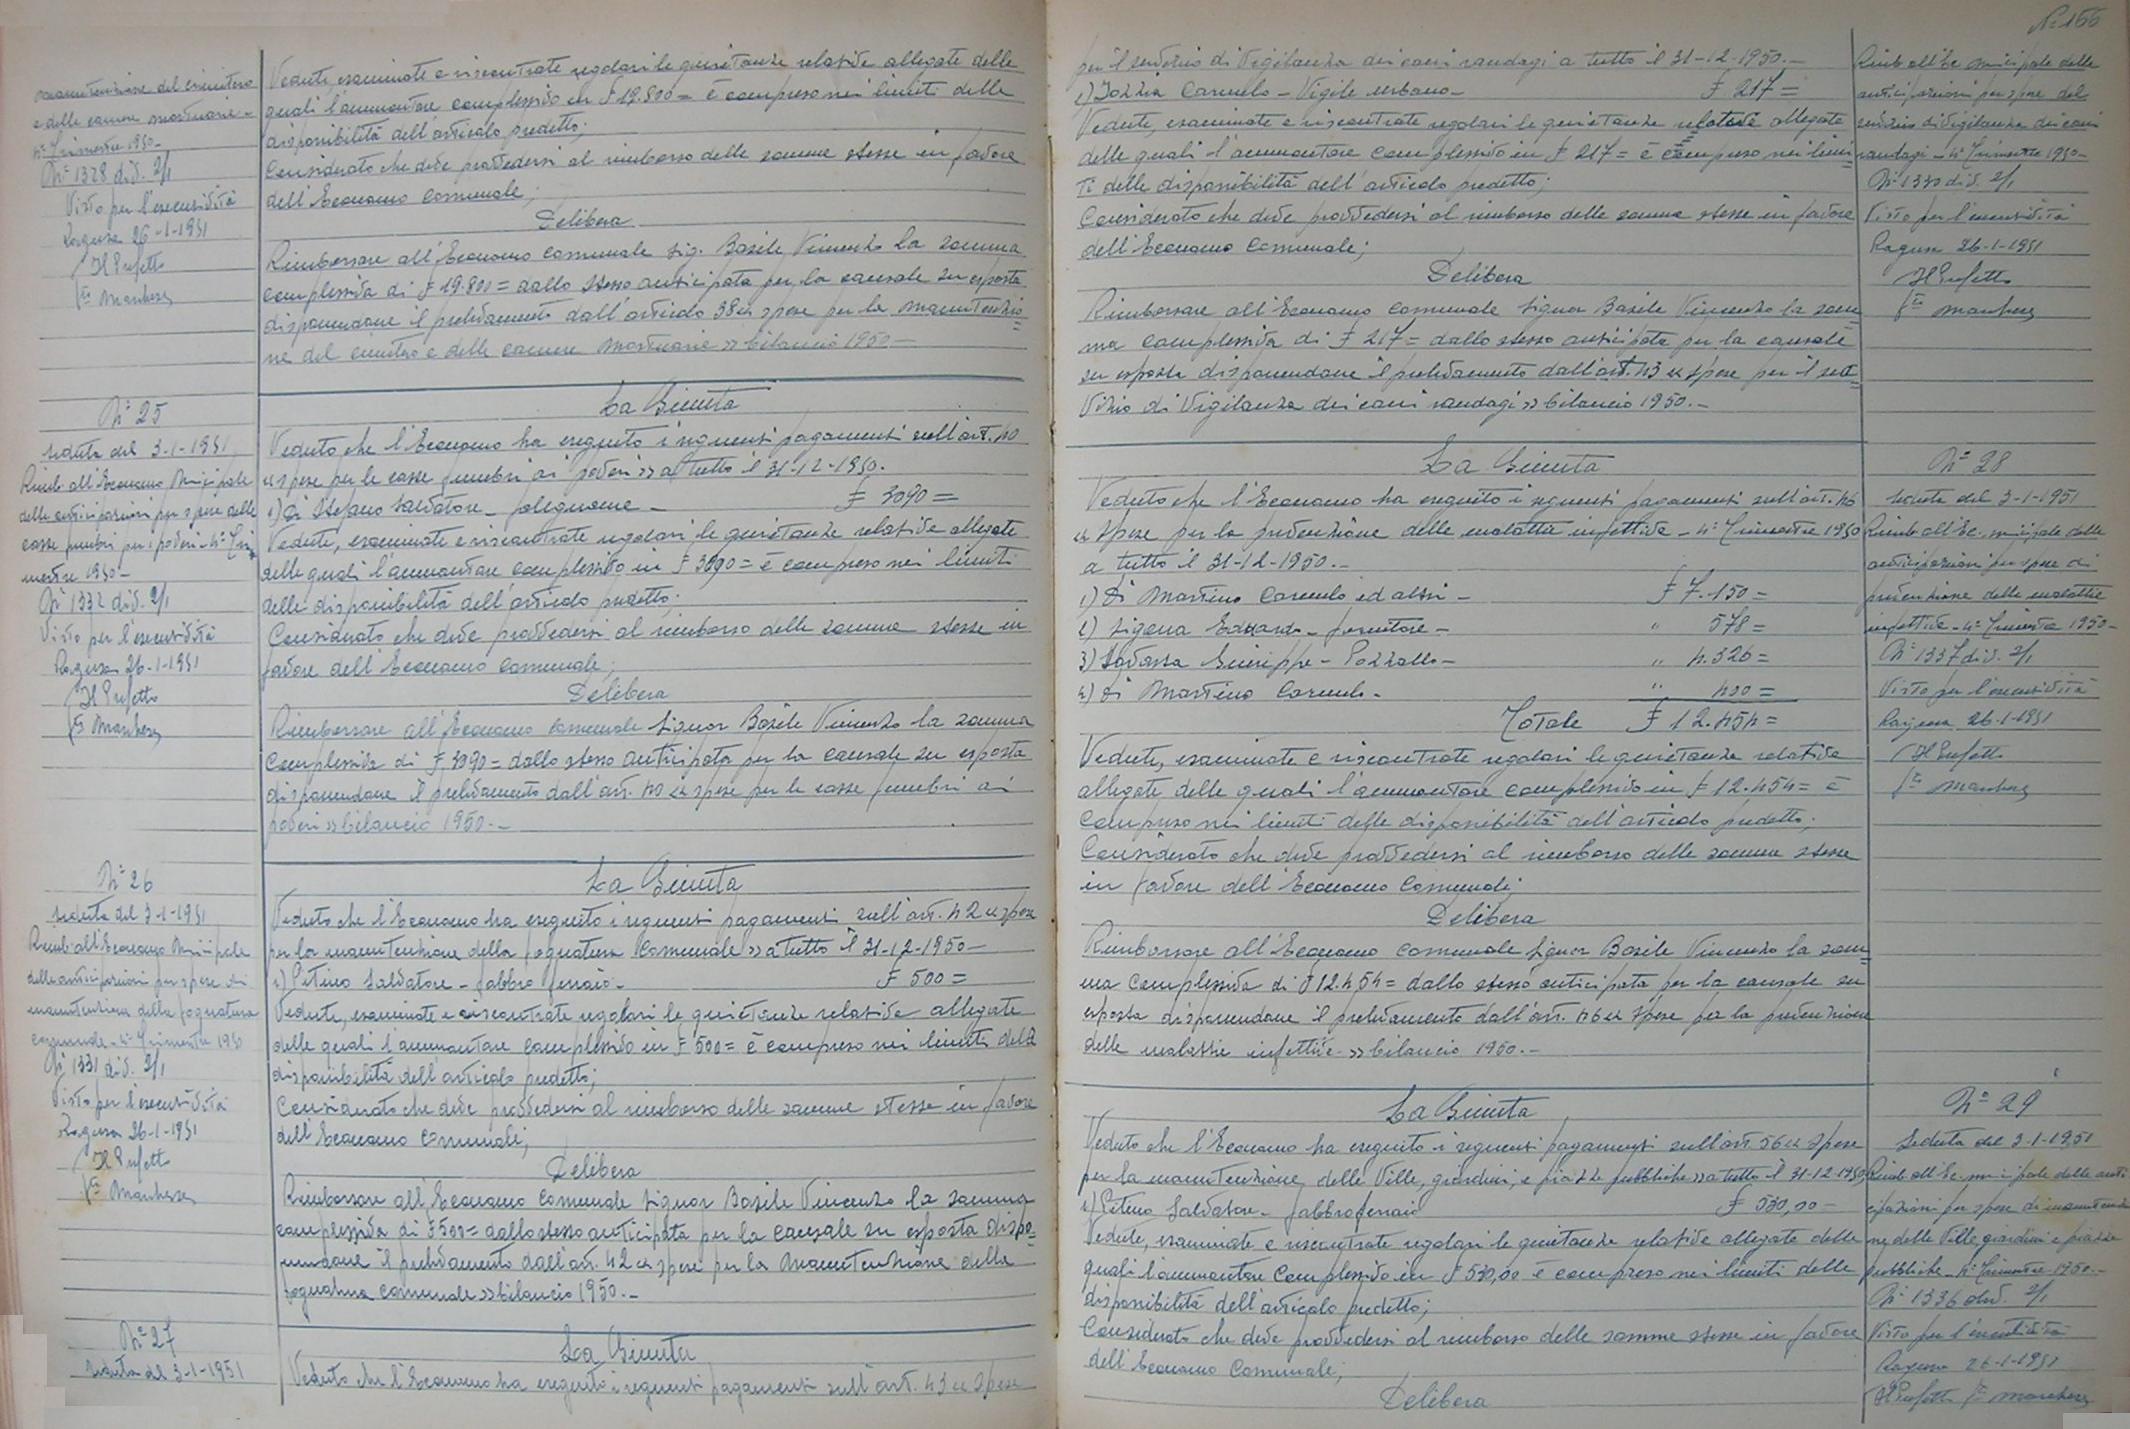 manutenzione del cimitero
e delle camere mortuarie -
4° Trimestre 1950 -
N° 1328 div. 2/1
Visto per l'esecutività
Ragusa 26-1-1951
Il Prefetto
Vedute, esaminate e riscontrate regolari le quietanze relative allegate delle
quali l'ammontare complessivo in £ 19.800= è compreso nei limiti delle
disponibilità dell'articolo predetto;
Considerato che deve provvedersi al rimborso delle somme stesse in favore
dell'Economo Comunale;
Delibera
Rimborsare all'Economo comunale sig. Basile Vincenzo la somma
complessiva di £ 19.800= dallo stesso anticipata per la causale su esposta
disponendone il prelevamento dall'articolo 38 « spese per la manutenzio=
ne del cimitero e delle camere mortuarie » bilancio 1950 —
N° 25
seduta del 3-1-1951
Rimb. all'Economo Municipale
delle anticipazioni per spese delle
casse funebri per i poveri - 4° Tri
mestre 1950 -
N° 1332 div. 2/1
Visto per l'esecutività
Ragusa 26-1-1951
Il Prefetto
La Giunta
Veduto che l'Economo ha eseguito i seguenti pagamenti sull'art. 40
« spese per le casse funebri ai poveri » a tutto il 31-12-1950.
1) Di Stefano Salvatore - falegname - £ 3090 =
Vedute, esaminate e riscontrate regolari le quietanze relative allegate
delle quali l'ammontare complessivo in £ 3090= è compreso nei limiti
delle disponibilità dell'articolo predetto;
Considerato che deve provvedersi al rimborso delle somme stesse in
favore dell'Economo Comunale;
Delibera
Rimborsare all'Economo Comunale Signor Basile Vincenzo la somma
complessiva di £ 3090= dallo stesso anticipata per la causale su esposta
disponendone il prelevamento dall'art. 40 « spese per le casse funebri ai
poveri » bilancio 1950. -
N° 26
seduta del 3-1-1951
Rimb. all'Economo Municipale
delle anticipazioni per spese di
manutenzione della fognatura
comunale - 4° Trimestre 195
N° 1331 div. 2/1
Visto per l'esecutività
Ragusa 26-1-1951
Il Prefetto
La Giunta
Veduto che l'Economo ha eseguito i seguenti pagamenti sull'art. 42 « spese
per la manutenzione della fognatura Comunale » a tutto il 31-12-1950 -
1) Pitino Salvatore - fabbro ferraio - £ 500 =
Vedute, esaminate e riscontrate regolari le quietanze relative allegate
delle quali l'ammontare complessivo in £ 500= è compreso nei limiti della
disponibilità dell'articolo predetto;
Considerato che deve provvedersi al rimborso delle somme stesse in favore
dell'Economo Comunale;
Delibera
Rimborsare all'Economo Comunale Signor Basile Vincenzo la somma
complessiva di £ 500= dallo stesso anticipata per la causale su esposta dispo=
nendone il prelevamento dall'art. 42 « spese per la manutenzione della
fognatura comunale » bilancio 1950. -
N° 27
seduta del 3-1-1951
La Giunta
Veduto che l'Economo ha eseguito i seguenti pagamenti sull'art. 43 « Spese
N: 166
per il servizio di Vigilanza dei cani randagi a tutto il 31-12-1950. -
1) Iozzia Carmelo - Vigile urbano - £ 217 =
Vedute, esaminate e riscontrate regolari le quietanze relative allegate
delle quali l'ammontare complessivo in £ 217= è compreso nei limi
ti delle disponibilità dell'articolo predetto;
Considerato che deve provvedersi al rimborso delle somme stesse in favore
dell'Economo Comunale;
Delibera
Rimborsare all'Economo comunale Signor Basile Vincenzo la som=
ma complessiva di £ 217= dallo stesso anticipata per la causale
su esposta disponendone il prelevamento dall'art. 43 « spese per il ser=
vizio di Vigilanza dei cani randagi » bilancio 1950. -
Rimb. all'Ec. Municipale delle
anticipazioni per spese del
servizio di vigilanza dei cani
randagi - 4° Trimestre 1950 -
N° 1330 div. 2/1
Visto per l'esecutività
Ragusa 26-1-1951
Il Prefetto
La Giunta
Veduto che l'Economo ha eseguito i seguenti pagamenti sull'art. 46
« Spese per la prevenzione delle malattie infettive - 4° Trimestre 1950
a tutto il 31-12-1950. -
1) Di Martino Carmelo ed altri - £ 7.150 =
2) Sigona Edoardo - fornitore - " 578 =
3) Savassa Giuseppe - Pozzallo - " 4.326 =
4) Di Martino Carmelo - " 400 =
Totale £ 12.454 =
Vedute, esaminate e riscontrate regolari le quietanze relative
allegate delle quali l'ammontare complessivo in £ 12.454= è
compreso nei limiti delle disponibilità dell'articolo predetto;
Considerato che deve provvedersi al rimborso delle somme stesse
in favore dell'Economo Comunale;
Delibera
Rimborsare all'Economo comunale Signor Basile Vincenzo la som=
ma complessiva di £ 12.454= dallo stesso anticipata per la causale su
esposta disponendone il prelevamento dall'art. 46 « Spese per la prevenzione
delle malattie infettive » bilancio 1950. -
N° 28
seduta del 3-1-1951
Rimb. all'Ec. Municipale delle
anticipazioni per spese di
prevenzione delle malattie
infettive - 4° Trimestre 1950 -
N° 1337 div. 2/1
Visto per l'esecutività
Ragusa 26-1-1951
Il Prefetto
La Giunta
Veduto che l'Economo ha eseguito i seguenti pagamenti sull'art. 56 « Spese
per la manutenzione delle Ville, giardini, e piazze pubbliche » a tutto il 31-12-1950
1) Pitino Salvatore - fabbro ferraio £ 530,00 -
Vedute, esaminate e riscontrate regolari le quietanze relative allegate delle
quali l'ammontare complessivo in £ 530,00 è compreso nei limiti delle
disponibilità dell'articolo predetto;
Considerato che deve provvedersi al rimborso delle somme stesse in favore
dell'Economo Comunale;
Delibera
N° 29
Seduta del 3-1-1951
Rimb. all'Ec. Municipale delle anti
cipazioni per spese di manutenzio
ne delle Ville giardini e piazze
pubbliche - 4° Trimestre 1950. -
N° 1336 div. 2/1
Visto per l'esecutività
Ragusa 26-1-1951
Il Prefetto